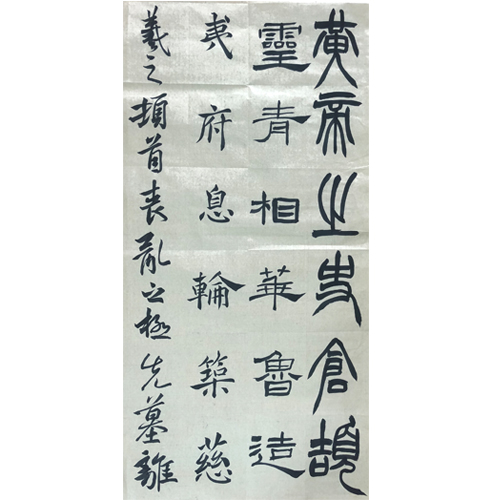 黄帝之史倉頡
靈青相華魯造
夷府息輪築慈
羲之頓首喪亂之極先墓離